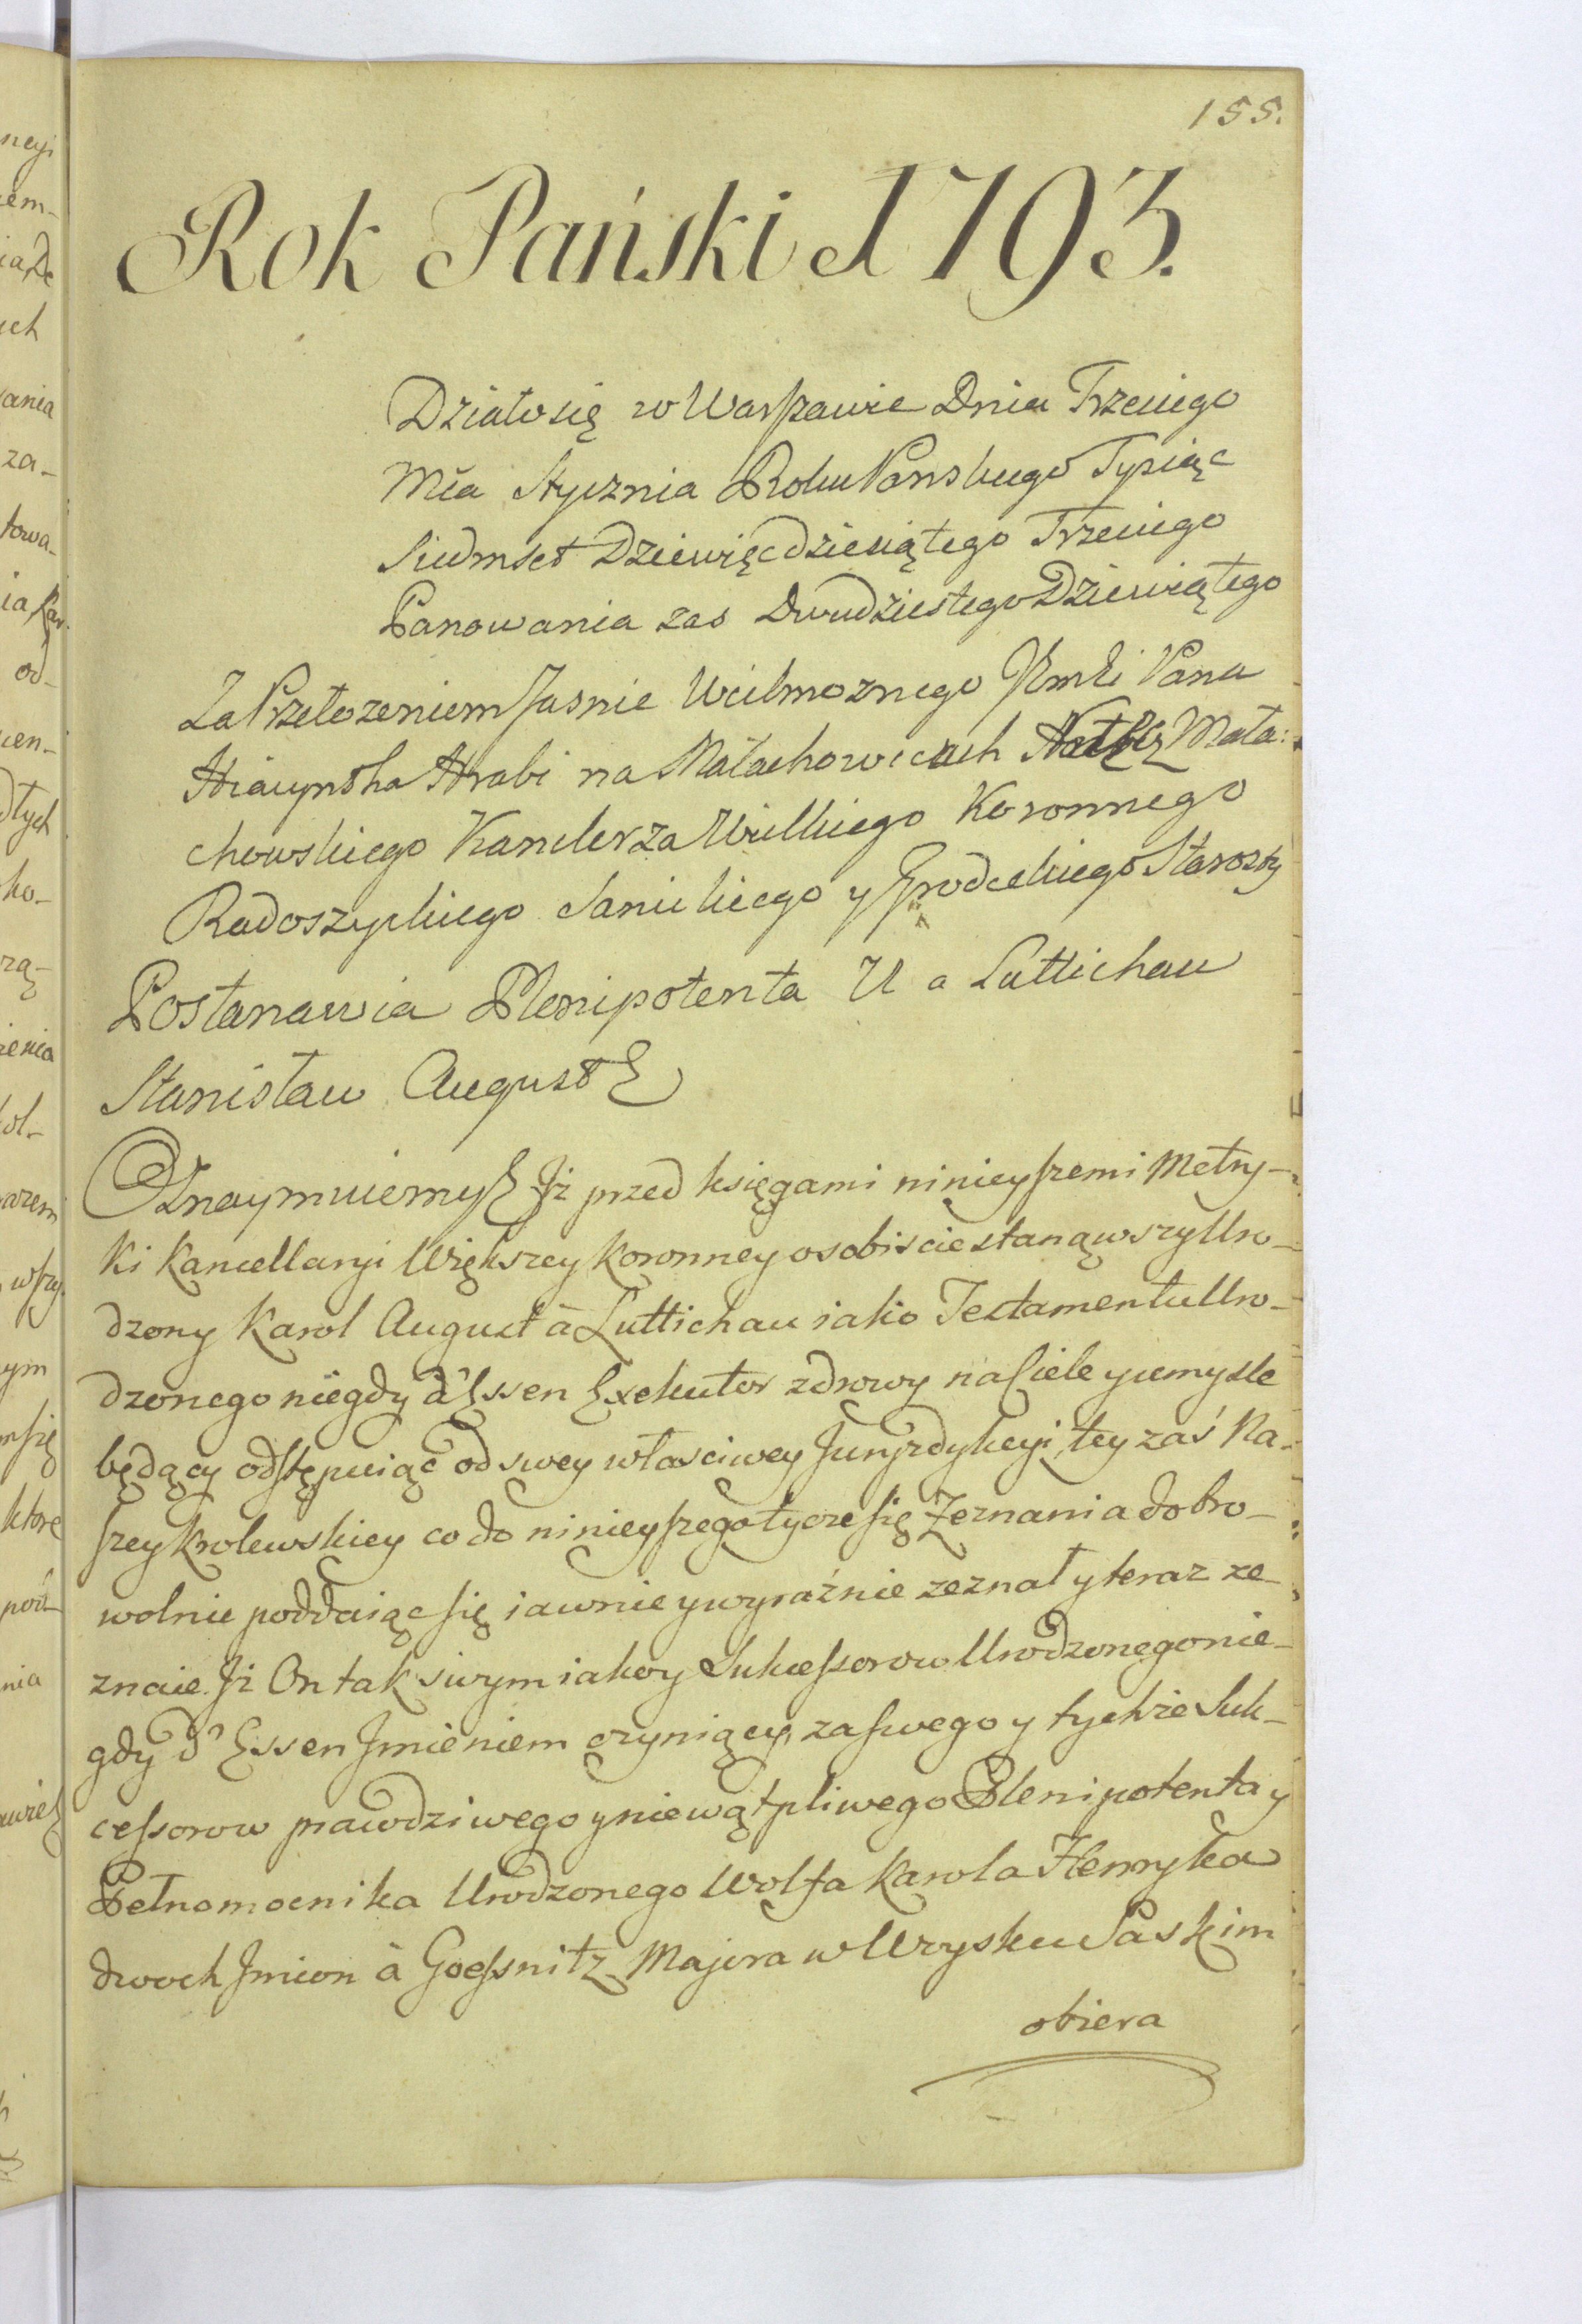 155.
Rok Pański 1793.
Działo się w Warszawie Dnia Trzeciego
Mca Stycznia Roku Panskiego Tysiąc
Siedmset Dziewięcdziesiątego Trzeciego
Panowania zas Dwudziestego Dziewiątego
Za Przełozeniem Jasnie Wielmoznego Jmći Pana
Hiacyntha Hrabi na Małachowicach Nałęcz Mała:
chowskiego Kanclerza Wielkiego Koronnego
Radoszyckiego Sanickiego y Grodeckiego Starosty
Postanawia Plenipotenta U a Luttichau
Stanisław August
Oznaymuiemy Jż przed księgami ninieyszemi Metry-
ki Kancellaryi Większey Koronney osobiscie stanąwszy Uro-
dzony Karol August à Luttichau iako Testamentu Uro-
dzonego niegdy d'Essen Exekutor zdrowy na Ciele y umysle
będący odstępuiąc od swey własciwey Juryzdykcyi, tey zaś Na-
szey Krolewskiey co do ninieyszego tycze się Zeznania dobro-
wolnie poddaiąc się iawnie y wyraźnie zeznał y teraz ze-
znaie. Jż On tak swym iako y Sukcessorow Urodzonego nie-
gdy d'Essen Jmieniem czyniący, za swego y tychże Suk-
cessorow prawdziwego y niewątpliwego Plenipotenta y
Pełnomocnika Urodzonego Wolfa Karola Henryka
dwoch Jmion à Goessnitz Majora w Woysku Saskim
obiera